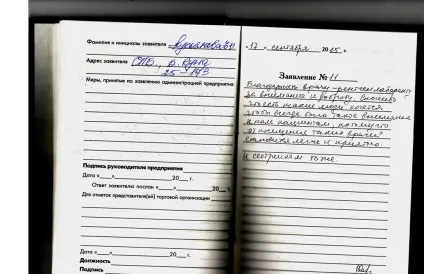 Фамилия и инициалы заявителя
Адрес заявителя СПб,
25-193
Меры, принятые по заявлению администрацией предприятия:
Подпись руководителя предприятия
Дата «___» ________ 20___ г.
Ответ заявителю послан «___» ________ 20___ г.
Для отметок представителя(ей) торговой организации
Дата «___» ________ 20___ г.
Должность
Подпись
«17» сентября 2005 г.
Заявление № 11
Благодарность врачу-рентгенлаборанту
за внимание и доброту,
что есть такие люди хочется
чтобы везде было такое внимание
к нам пациентам, потому что
от посещения таких врачей
становится легче и приятно
и сестричкам тоже.